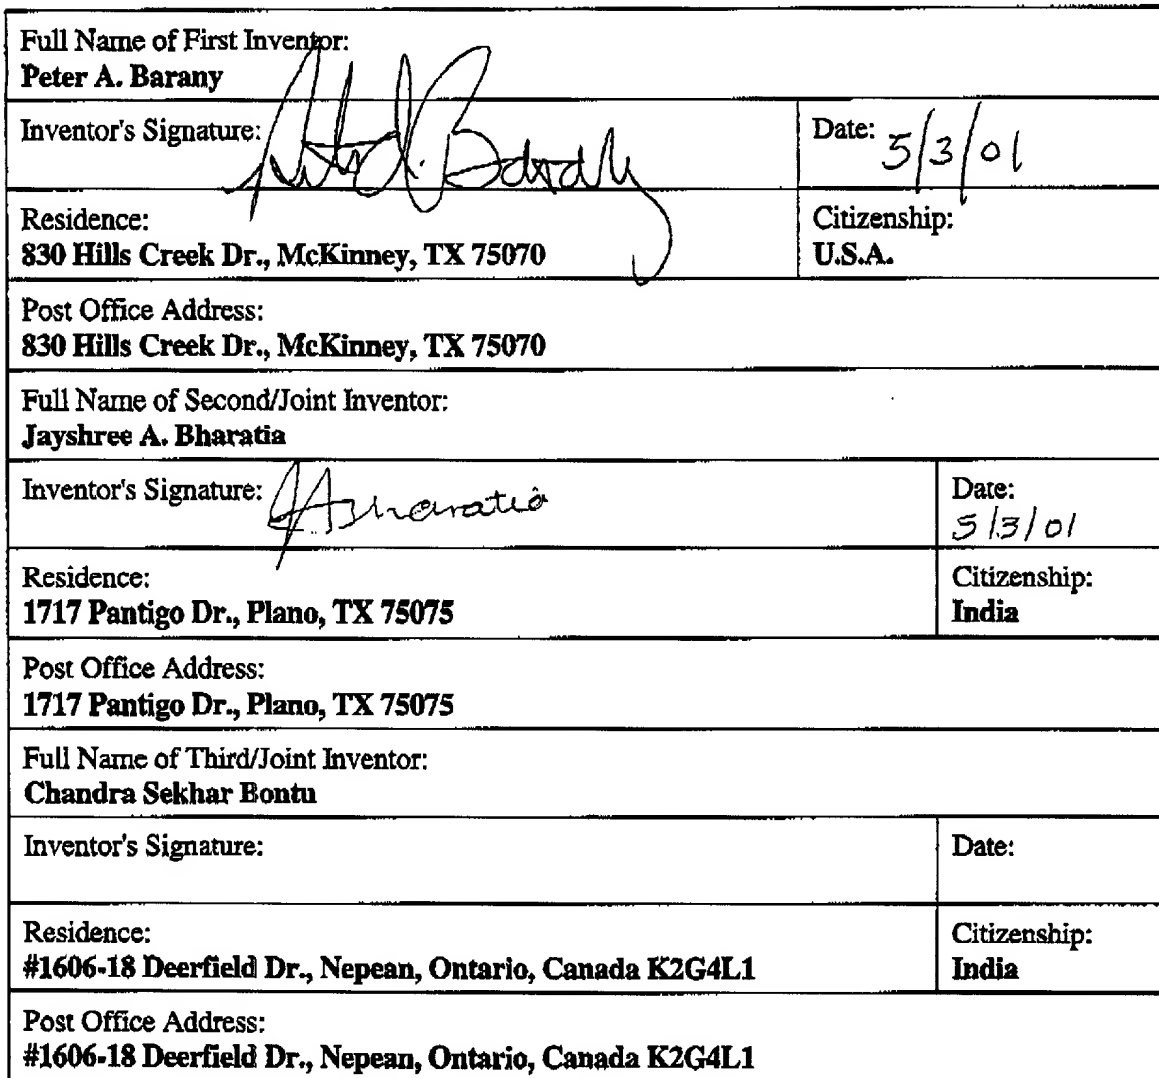 Full Name of First Inventor:
Peter A. Barany
Inventor's Signature: Peter A. Barany
Date: 5/3/01
Residence:
830 Hills Creek Dr., McKinney, TX 75070
Citizenship:
U.S.A.
Post Office Address:
830 Hills Creek Dr., McKinney, TX 75070
Full Name of Second/Joint Inventor:
Jayshree A. Bharatia
Inventor's Signature: JABharatia
Date:
5/3/01
Residence:
1717 Pantigo Dr., Plano, TX 75075
Citizenship:
India
Post Office Address:
1717 Pantigo Dr., Plano, TX 75075
Full Name of Third/Joint Inventor:
Chandra Sekhar Bontu
Inventor's Signature:
Date:
Residence:
#1606-18 Deerfield Dr., Nepean, Ontario, Canada K2G4L1
Citizenship:
India
Post Office Address:
#1606-18 Deerfield Dr., Nepean, Ontario, Canada K2G4L1